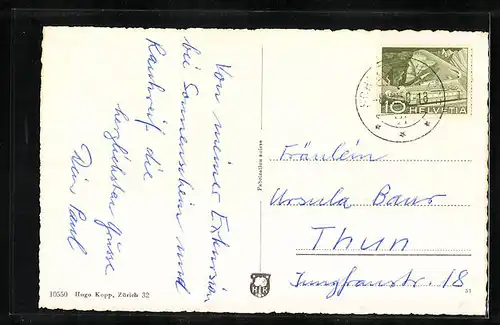 Von meiner Exkursion
bei Sonnenschein und
Rauhreif die
herzlichsten Grüsse
Dein Paul
10550 Hugo Kopp, Zürich 32
Fabrication suisse
HK
10 HELVETIA
Fräulein
Ursula Baur
Thun
Jungfraustr. 18